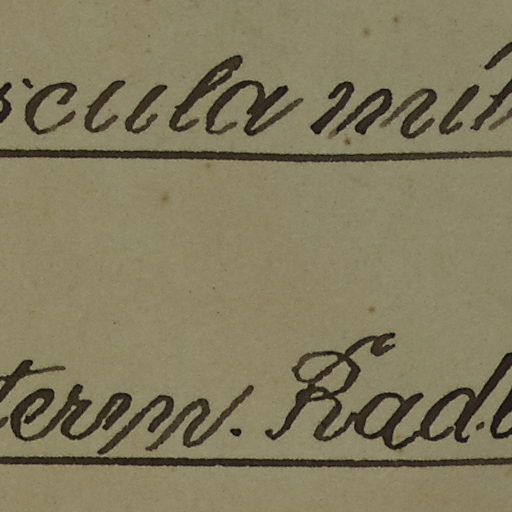 scula mit
term. Radl